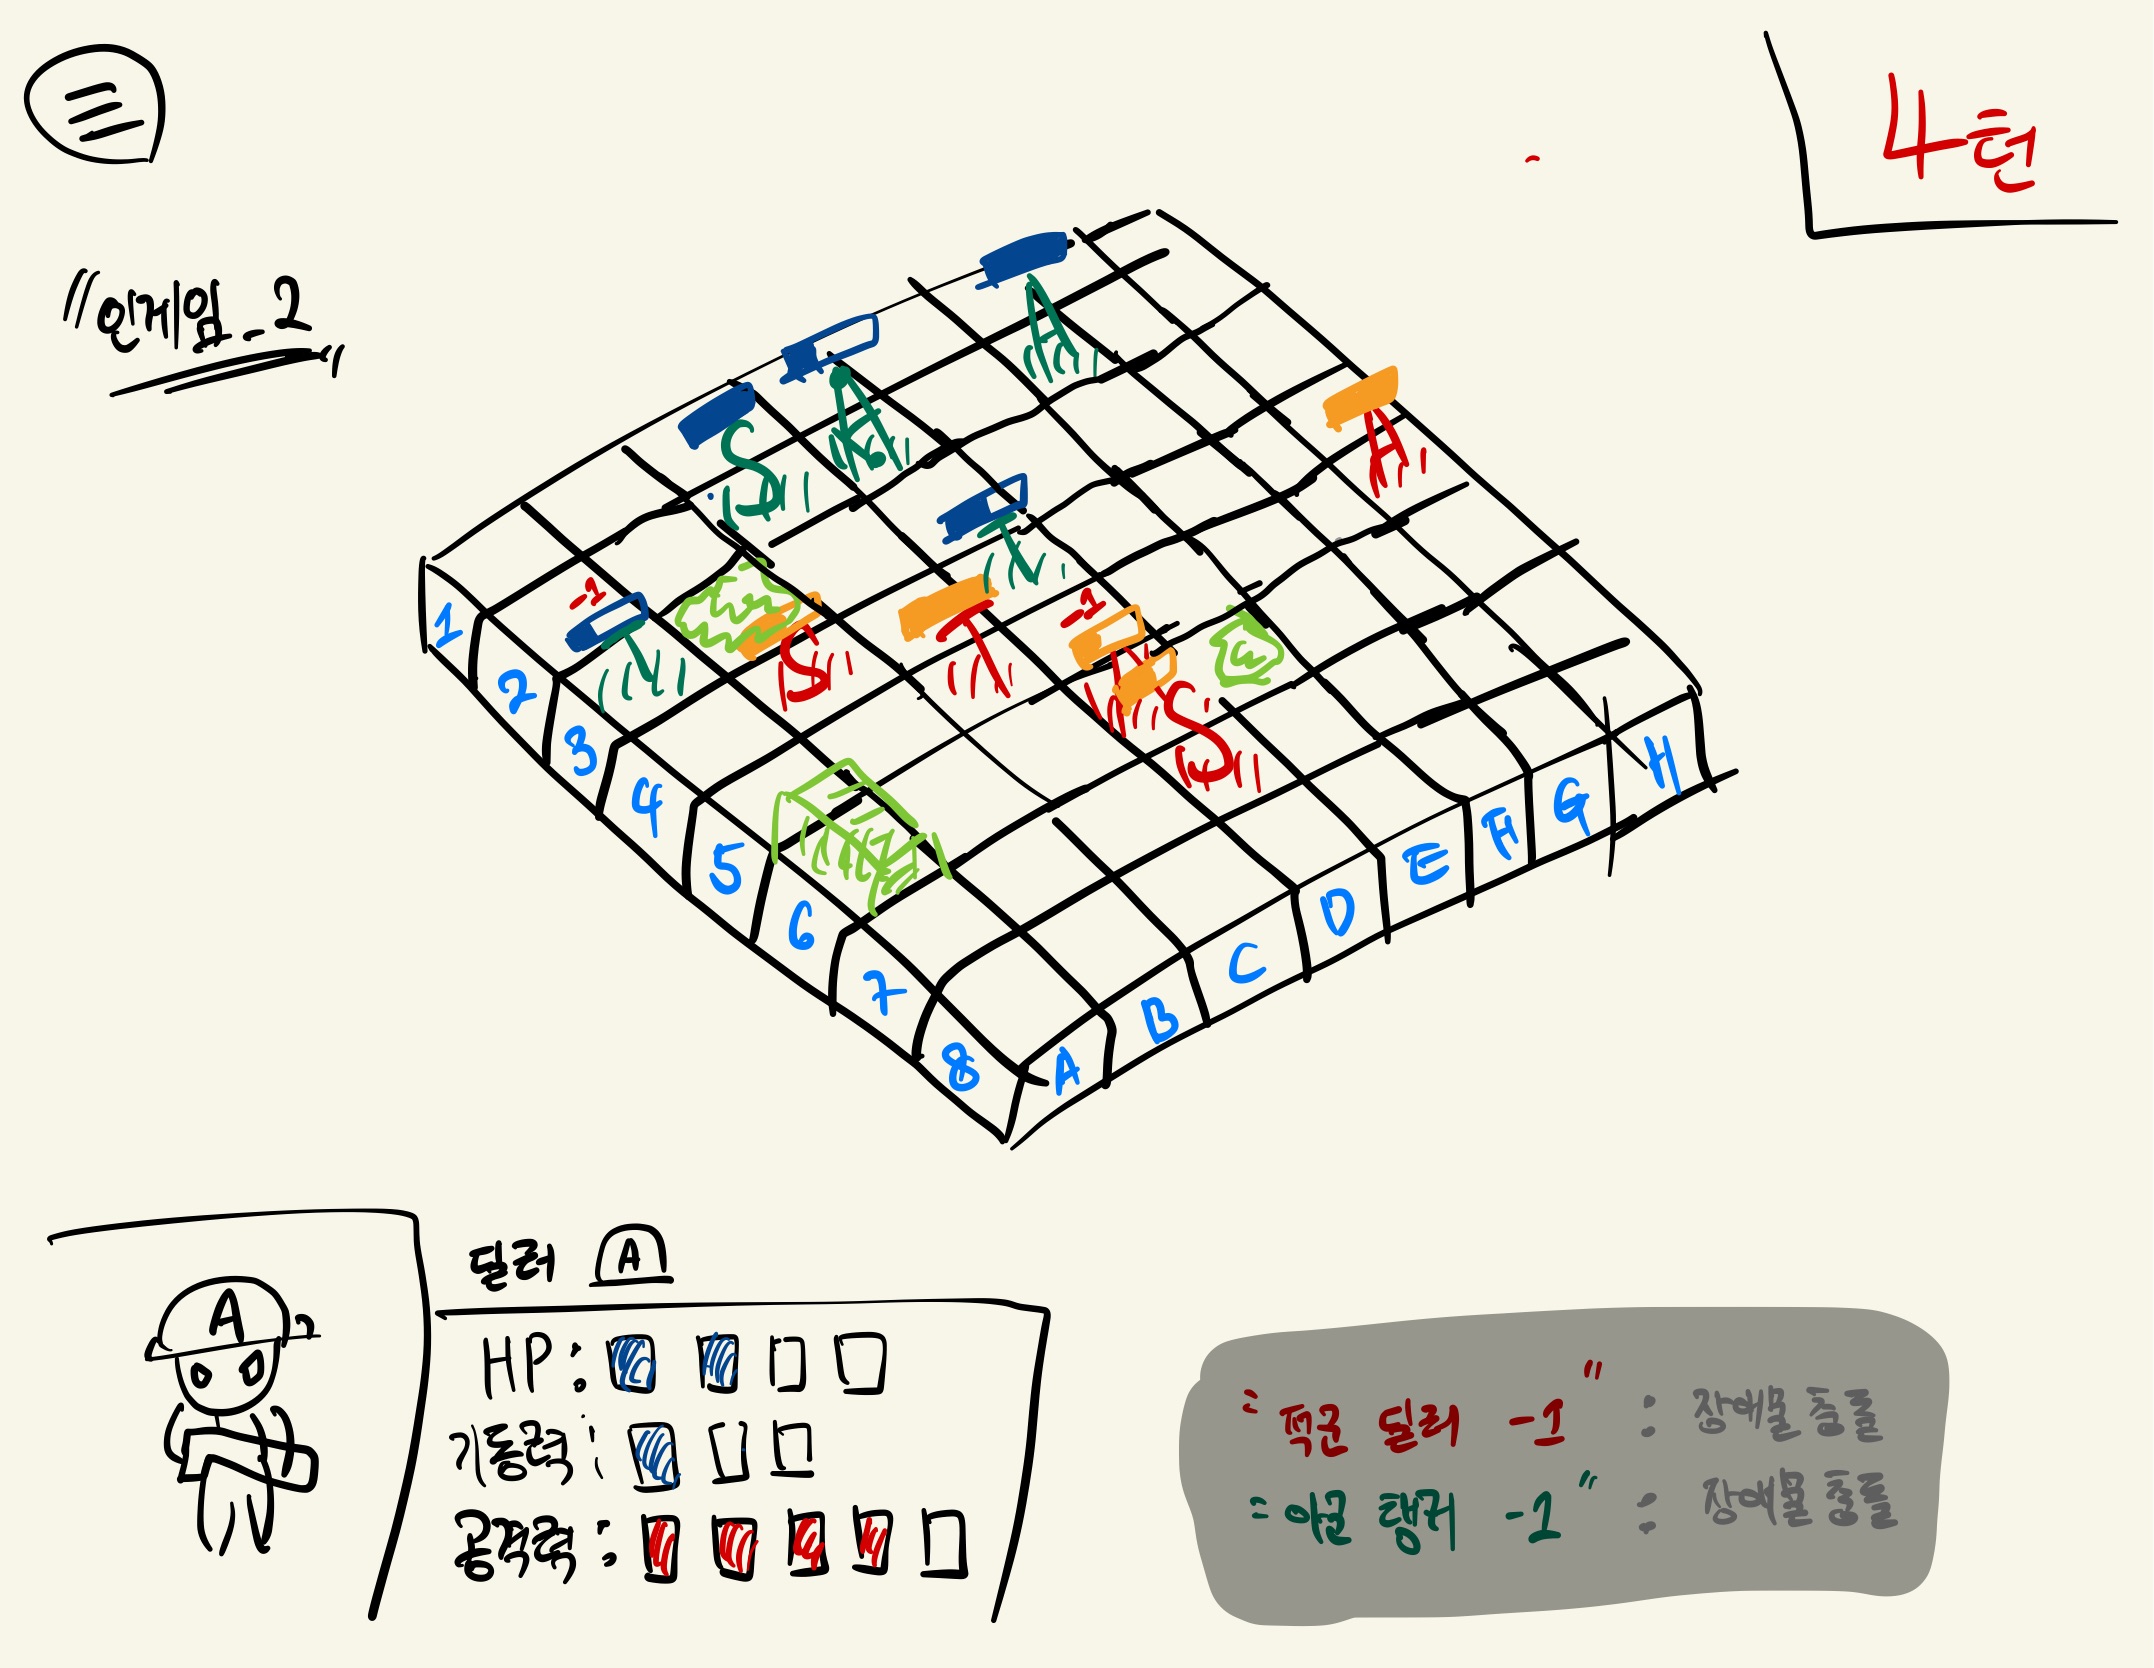 4턴
"인게임_2"
A
K
S
A
T
-1
T
S
T
-1
T
S
1
2
3
4
5
6
7
8
A
B
C
D
E
F
G
H
A
딜러 A
HP:
기동력:
공격력:
"적군 딜러 -1" : 장애물 충돌
"아군 탱커 -1" : 장애물 충돌